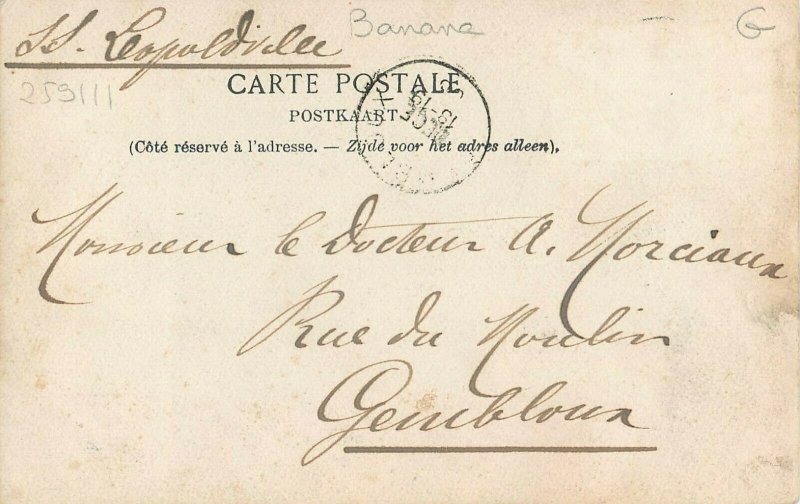 Banana
G
SS. Léopoldville
259111
CARTE POSTALE
POSTKAART
(Côté réservé à l'adresse. — Zijde voor het adres alleen).
Monsieur le Docteur A. Morciaux
Rue du Moulin
Gembloux